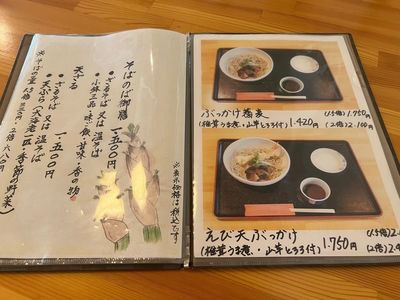 そばのば御膳 一、五〇〇円
・ざるそば 又は 温そば
・小鉢三品・味ご飯・甘味・香の物
天ざる 一、五〇〇円
・ざるそば 又は 温そば
・天ぷら（大海老二匹 季節の野菜）
※そばの量 1.5倍 三三〇円・2倍 六八〇円
※表示価格は税込です
ぶっかけ蕎麦 (1.5倍) 1,750
(椎茸うま煮・山芋とろろ付) 1,420円 (2倍) 2,100
えび天ぶっかけ (1.5倍) 2
(椎茸うま煮・山芋とろろ付) 1,750円 (2倍) 2,4